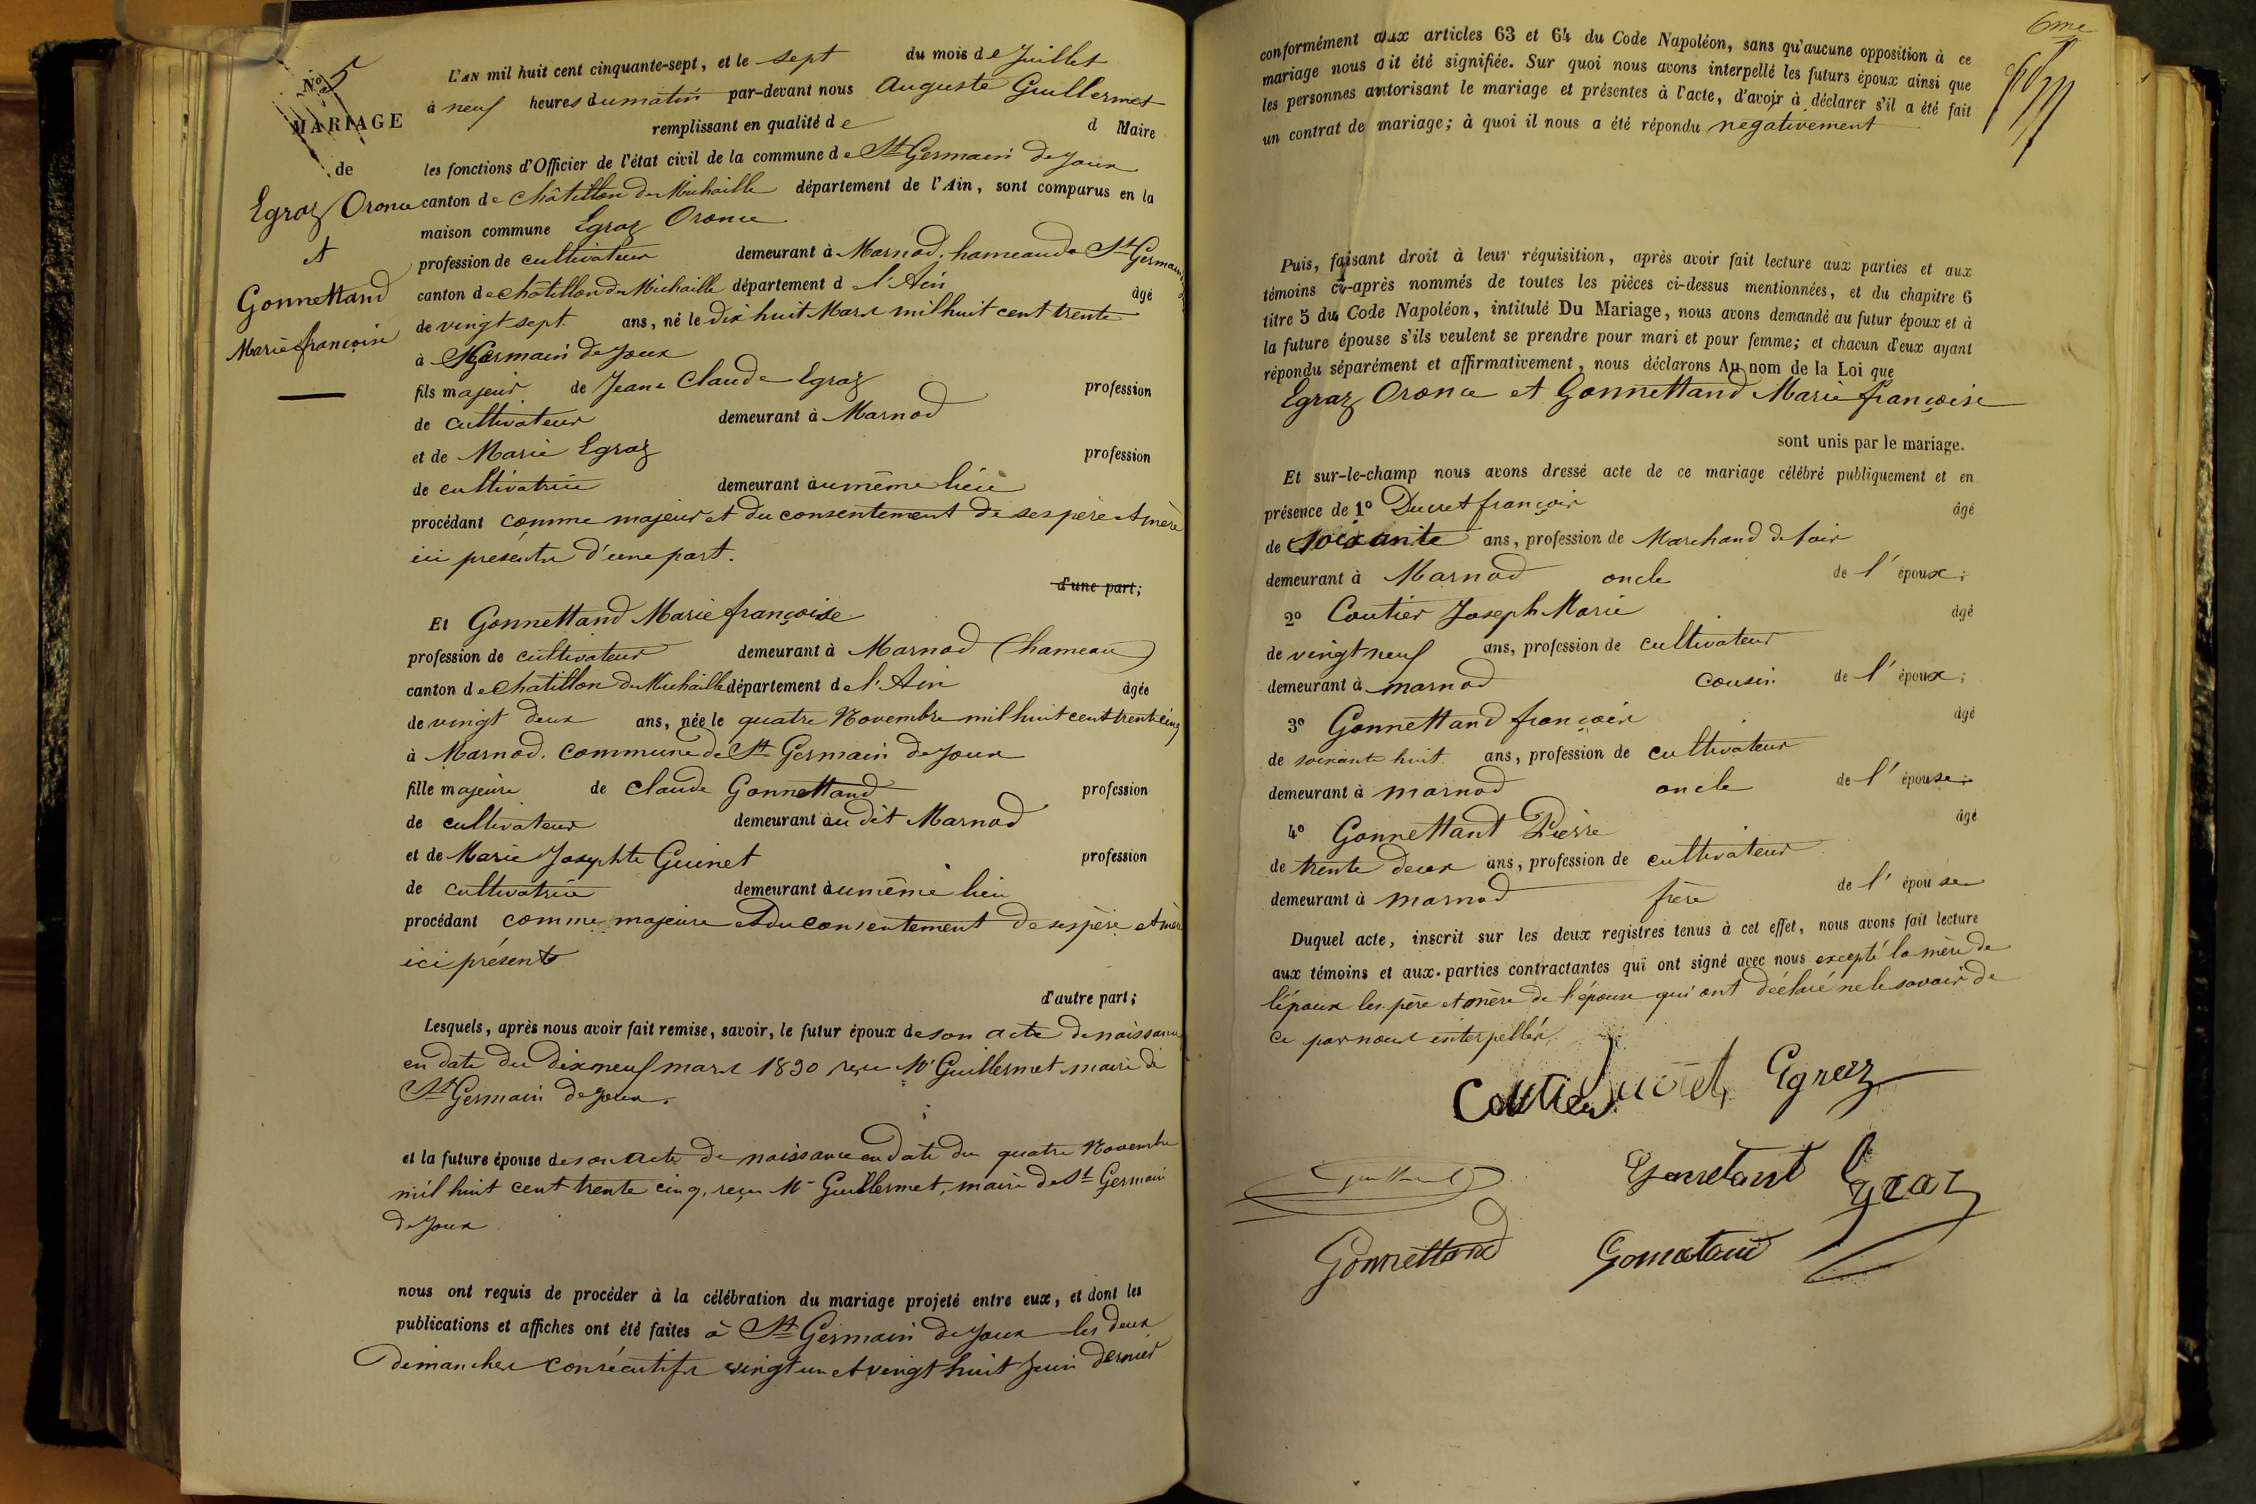 N° 5
MARIAGE
de
Egraz Oronce
et
Gonnettand
Marie françoise
L'AN mil huit cent cinquante-sept, et le sept du mois de Juillet
à neuf heures du matin par-devant nous Auguste Guillermet
remplissant en qualité de d Maire
les fonctions d'Officier de l'état civil de la commune de St Germain de Joux
canton de Châtillon de Michaille département de l'Ain, sont comparus en la
maison commune Egraz Oronce
profession de cultivateur demeurant à Marnod, hameau de St Germain
canton de Châtillon de Michaille département d l'Ain âgé
de vingt sept ans, né le dix huit Mars mil huit cent trente
à St Germain de Joux
fils majeur de Jean Claude Egraz profession
de cultivateur demeurant à Marnod
et de Marie Egraz profession
de cultivatrice demeurant au même lieu
procédant comme majeur et du consentement de ses père et mère
ici présents d'une part.
d'une part;
Et Gonnettand Marie françoise
profession de cultivateur demeurant à Marnod (hameau)
canton de Chatillon de Michaille département de l'Ain âgée
de vingt deux ans, née le quatre Novembre mil huit cent trente cinq
à Marnod. commune de St Germain de Joux
fille majeure de Claude Gonnettand profession
de cultivateur demeurant au dit Marnod
et de Marie Josephte Guinet profession
de cultivatrice demeurant au même lieu
procédant comme majeure et du consentement de ses père et mère
ici présents
d'autre part;
Lesquels, après nous avoir fait remise, savoir, le futur époux de son acte de naissance
en date du dix neuf mars 1830 reçu Mr Guillermet maire de
St Germain de Joux.
et la future épouse de son acte de naissance en date du quatre Novembre
mil huit cent trente cinq, reçu Mr Guillermet, maire de St Germain
de Joux
nous ont requis de procéder à la célébration du mariage projeté entre eux, et dont les
publications et affiches ont été faites à St Germain de Joux les deux
dimanches consécutifs vingt un et vingt huit Juin dernier
6me
conformément aux articles 63 et 64 du Code Napoléon, sans qu'aucune opposition à ce
mariage nous ait été signifiée. Sur quoi nous avons interpellé les futurs époux ainsi que
les personnes autorisant le mariage et présentes à l'acte, d'avoir à déclarer s'il a été fait
un contrat de mariage; à quoi il nous a été répondu négativement
Puis, faisant droit à leur réquisition, après avoir fait lecture aux parties et aux
témoins ci-après nommés de toutes les pièces ci-dessus mentionnées, et du chapitre 6
titre 5 du Code Napoléon, intitulé Du Mariage, nous avons demandé au futur époux et à
la future épouse s'ils veulent se prendre pour mari et pour femme; et chacun d'eux ayant
répondu séparément et affirmativement, nous déclarons Au nom de la Loi que
Egraz Oronce et Gonnettand Marie françoise
sont unis par le mariage.
Et sur-le-champ nous avons dressé acte de ce mariage célébré publiquement et en
présence de 1° Ducret françois âgé
de soixante ans, profession de Marchand de
demeurant à Marnod oncle de l'époux;
2° Coutier Joseph Marie âgé
de vingt neuf ans, profession de cultivateur
demeurant à marnod cousin de l'époux;
3° Gonnettand françois âgé
de soixante huit ans, profession de cultivateur
demeurant à marnod oncle de l'épouse;
4° Gonnettant Pierre âgé
de trente deux ans, profession de cultivateur
demeurant à marnod frère de l'épouse
Duquel acte, inscrit sur les deux registres tenus à cet effet, nous avons fait lecture
aux témoins et aux parties contractantes qui ont signé avec nous excepté la mère de
l'époux les père et mère de l'épouse qui ont déclaré ne le savoir de
ce par nous interpellés.
Coutier Ducret Egraz
Gonnetant Egraz
Gonnettand